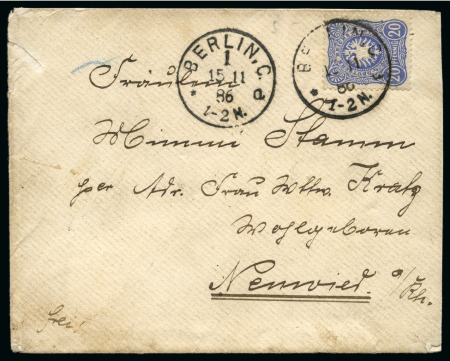 BERLIN, C.
1
15 11
86
* 1-2 N. d
20 PFENNIG 20
Fräulein
Mimmi Stamm
per Adr. Frau Wttw. Kratz
Wohlgeboren
Neuwied a/Rh.
frei!